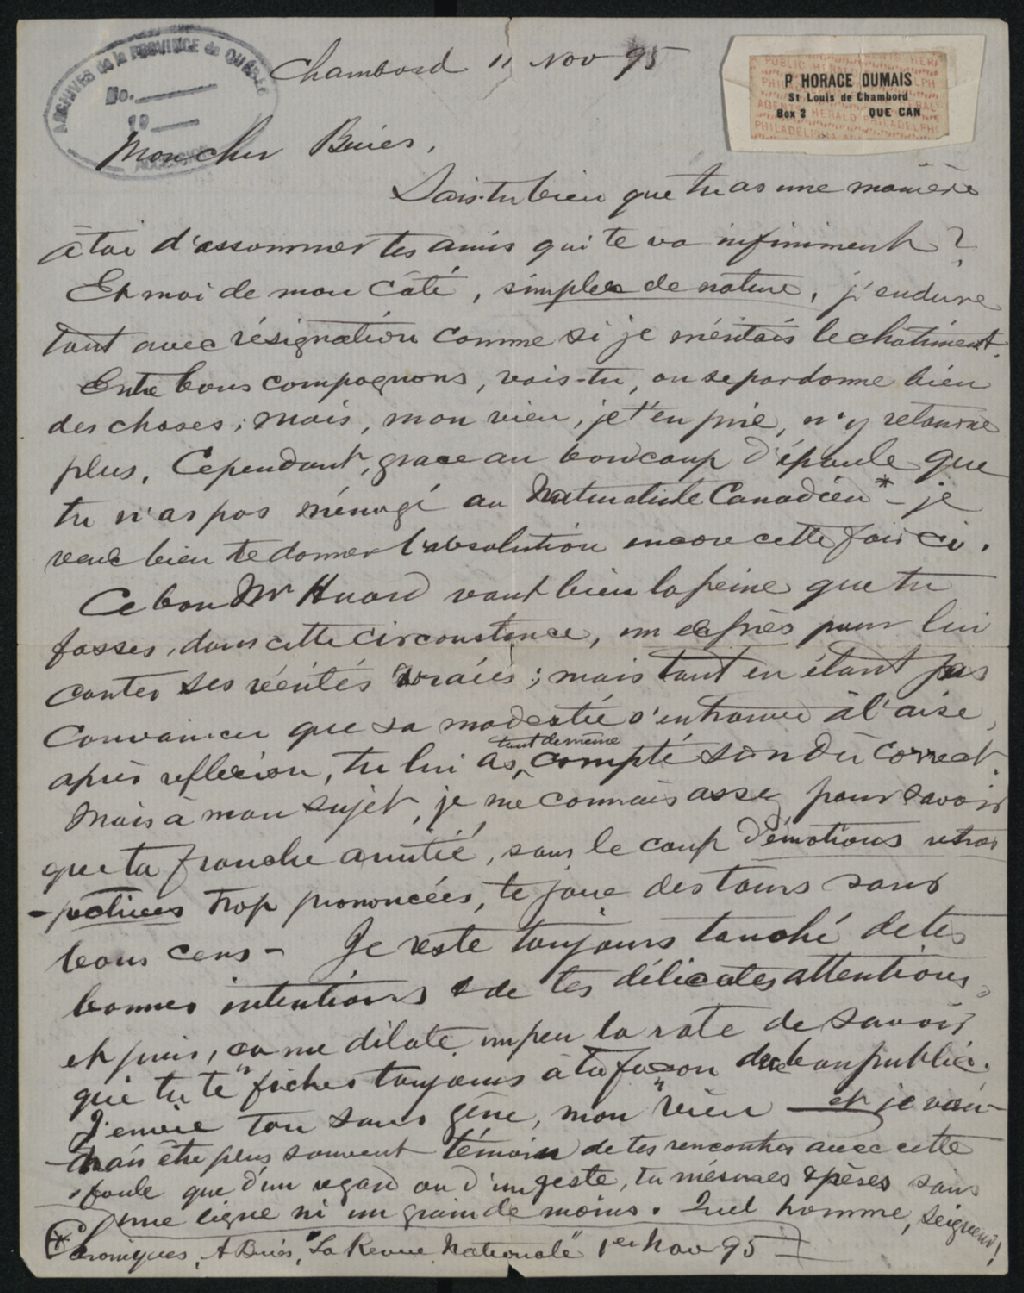 ARCHIVES de la PROVINCE de QUÉBEC
No.
19
Chambord 11 Nov 95
P. HORACE DUMAIS
St Louis de Chambord
Box 2 QUE CAN
Mon cher Buies,
Sais-tu bien que tu as une manière
à toi d'assommer tes amis qui te va infiniment ?
Et moi de mon côté, simple de nature, j'endure
tout avec résignation comme si je méritais le châtiment.
Entre bons compagnons, vois-tu, on se pardonne bien
des choses; mais, mon vieu, je t'en prie, n'y retourne
plus. Cependant, grace au bon coup d'épaule que
tu n'as pas ménagé au Naturaliste Canadien * - je
veux bien te donner l'absolution encore cette fois ci.
Ce bon Mr Huard vaut bien la peine que tu
fasses, dans cette circonstance, un exprès pour lui
conter ses vérités vraies ; mais tout en étant pas
convaincu que sa modestie s'en trouve à l'aise,
après reflexion, tu lui as tout de même compté son dû correct.
Mais à mon sujet, je me connais assez pour savoir
que ta franche amitié, sous le coup d'émotions rétros
-pectives trop prononcées, te joue des tours sans
bons cens - Je reste toujours touché de tes
bonnes intentions & de tes délicates attentions,
et puis, ça me dilate un peu la rate de savoir
que tu te "fiches toujours à ta façon du beau public.
J'envie ton sans gêne, mon "vieu" — et je vou-
-drais être plus souvent témoin de tes rencontres avec cette
foule que d'un regard ou d'un geste, tu mésures & pèses sans
une ligne ni un grain de moins. Quel homme, Seigneur!
(*) Chroniques, A Buies, "La Revue Nationale" 1er Nov 95